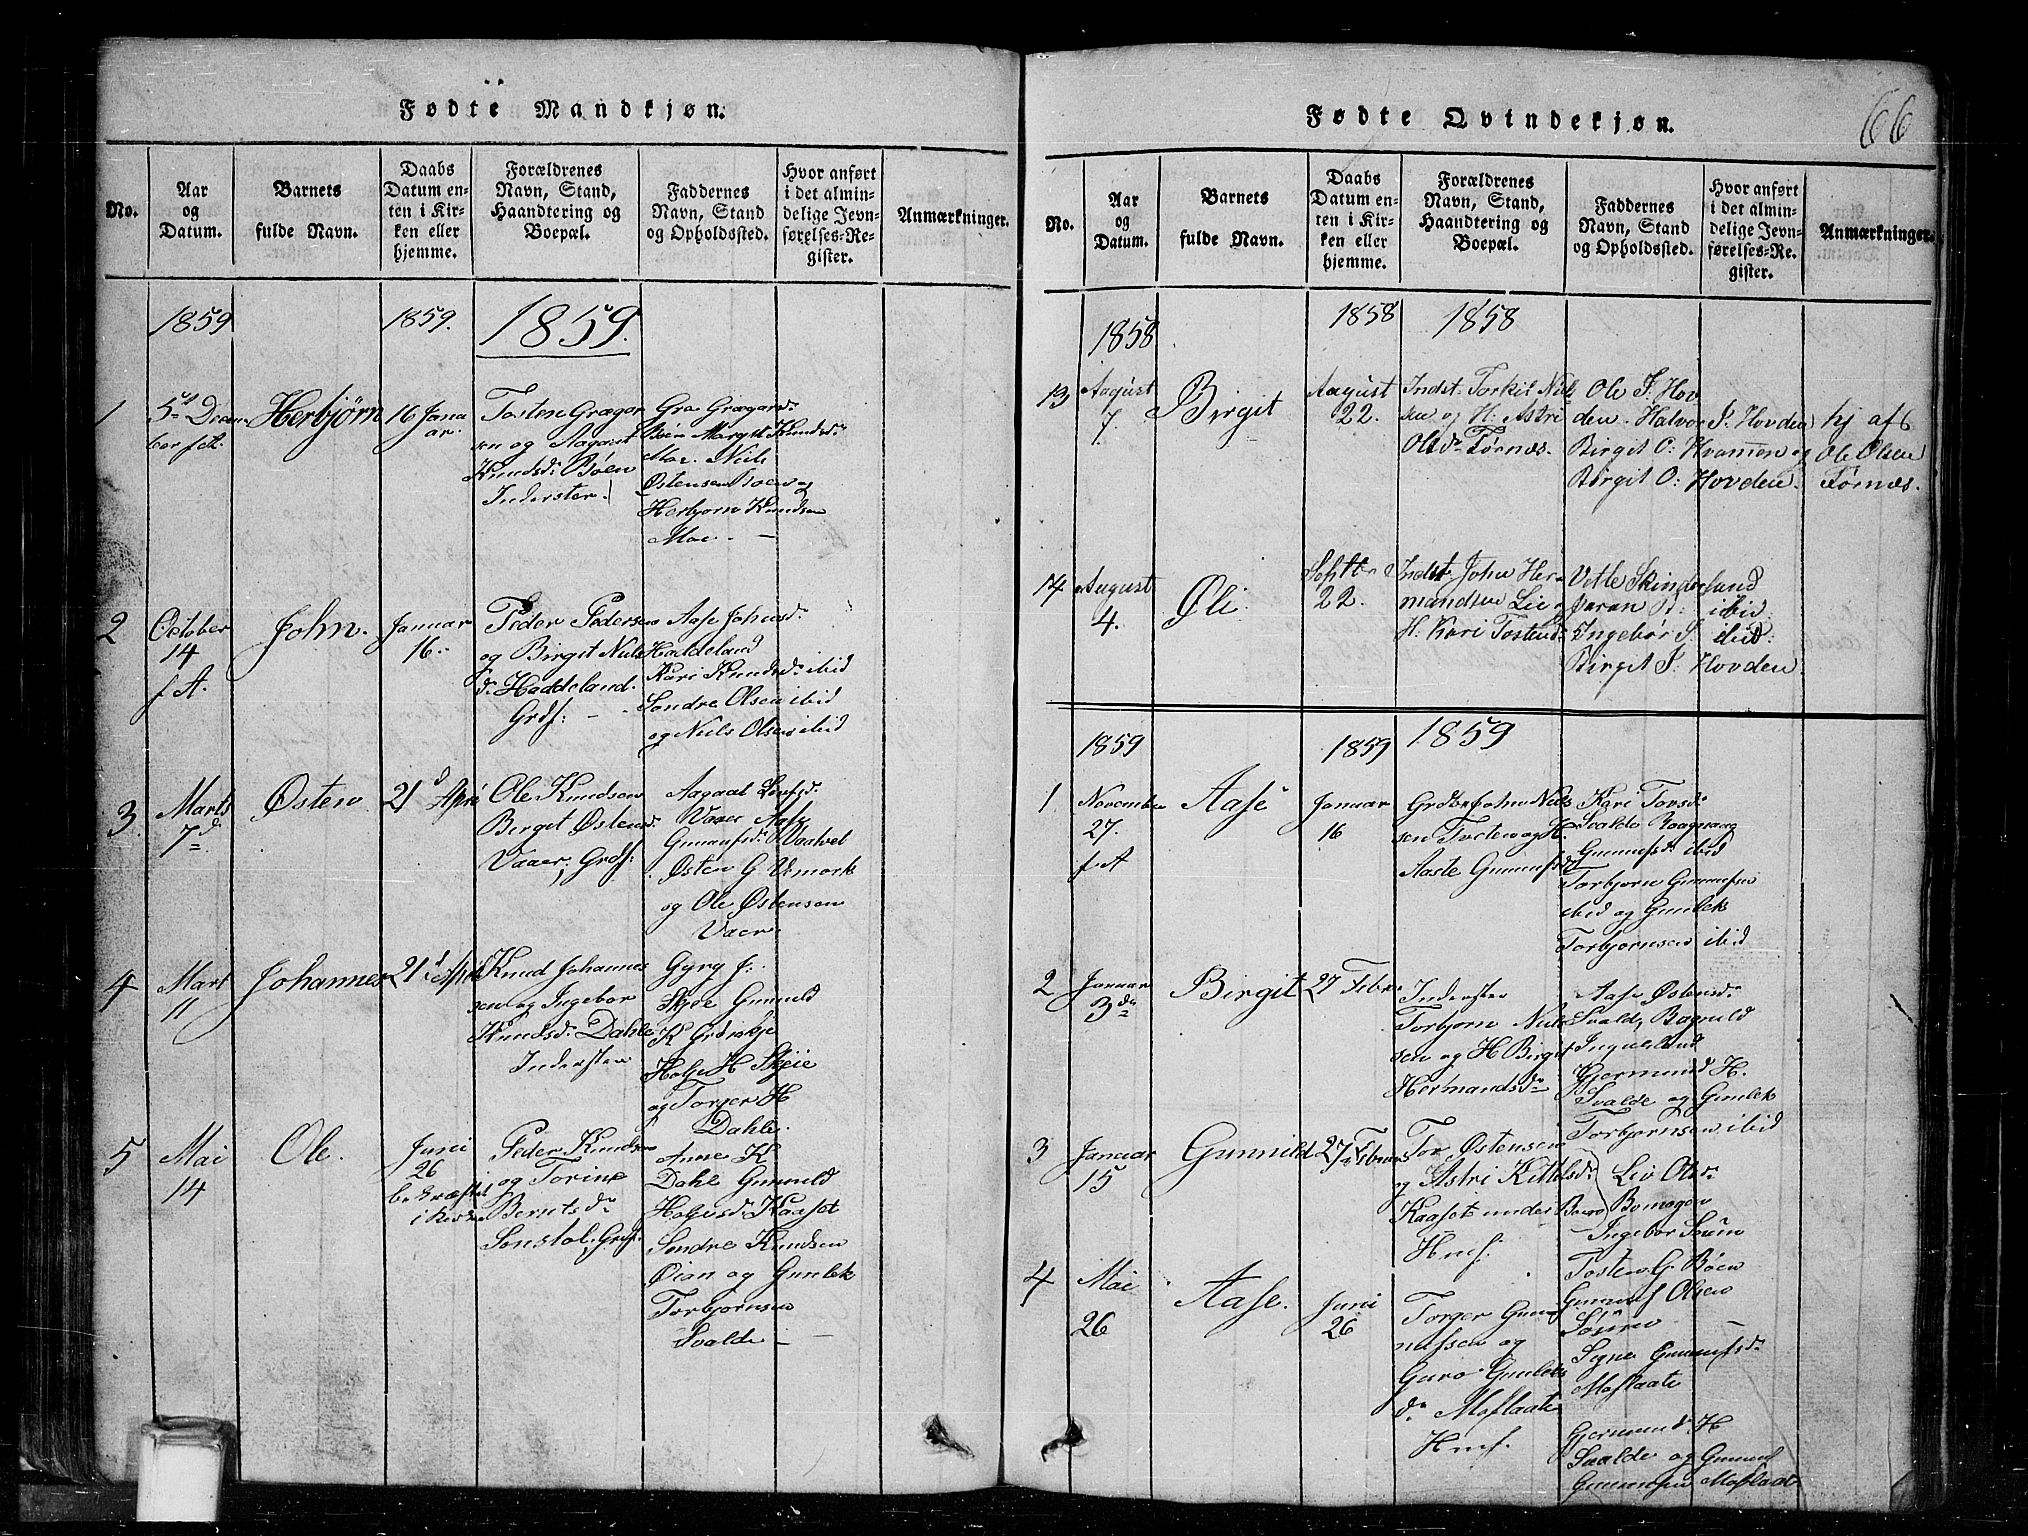 Fødte Mandkjøn.
No.
Aar
og
Datum.
Barnets
fulde Navn.
Daabs
Datum en-
ten i Kir-
ken eller
hjemme.
Forældrenes
Navn, Stand,
Haandtering og
Boepæl.
Faddernes
Navn, Stand
og Opholdssted.
Hvor anført
i det almin-
delige Jevn-
førelses-Re-
gister.
Anmærkninger.
1859
1859.
1859.
1
5te Decem
ber f A.
Herbjørn
16 Janu
ar.
Tosten Græger
sen og Aagaat
Knudsd. Bøen
Inderster.
Gro Grægersd.
Bøen Margit Knudsd.
Moe. Niels
Østensen Bøen og
Herbjørn Knudsen
Moe. —
2
October
14
f A.
John.
Januar
16.
Peder Pedersen
og Birgit Niels
d. Haddeland.
Grdf. —
Aase Johnsd.
Haddeland
Kari Knudsd. ibid
Sondre Olsen ibid
og Niels Olsen ibid
3.
Marts
7d.
Østen
21d April
Ole Knudsen
Birget Østensd.
Vaaer, Grdf.
Aagaat Leifsd.
Vaaer Aase
Gunnufsd. Vaalvel
Østen G Vemork
og Ole Østensen
Vaaer.
4
Mart
11
Johannes
21d April
Knud Johannes
sen og Ingebor
Knudsd. Dahle
Indersten
Gyrg J:
Skjøe Gunuld
K Grdviskje
Holje H Skjeie
og Torger H
Dahle.
5
Mai
14
Ole.
Juni
26
bekræftet
i Kirke
Peder Knudsen
og Torine
Berntsd.
Sønstol, Grdf.
Anne K
Dahl Gunuld
Holjesd. Kaasot
Sondre Knudsen
Øian og Gunlek
Torbjørnsen
Svalde —
Fødte Qvindekjøn.
66
No.
Aar
og
Datum.
Barnets
fulde Navn.
Daabs
Datum en-
ten i Kir-
ken eller
hjemme.
Forældrenes
Navn, Stand,
Haandtering og
Boepæl.
Faddernes
Navn, Stand
og Opholdssted.
Hvor anført
i det almin-
delige Jevn-
førelses-Re-
gister.
Anmærkninger.
1858
1858
1858
13
August
7.
Birgit
August
22.
Indst. Torkil Niel
sen og H. Astri
Olsd. Førnæs.
Ole J. Hov
den. Halvor J. Hovden
Birgit O: Hvamen og
Birgit O: Hovden.
hj af
Ole Olsen
Førnæs.
14
August
4.
Øli.
Septbr
22.
Indst. John Her
mandsen Lie og
H. Kari Tostend.
Vetle Skinderland
Jøran O: ibid
Ingebør S. ibid:
Birgit J. Hovden.
1859
1859
1859
1
November
27.
f. A
Aase
Januar
16
Grdbr John Niel
sen Tveten og H.
Aaste Gunnufsd.
Kari Torsd.
Svalde Raagna
Gunnufsd. ibid
Torbjørn Gunnufsen
ibid og Gunlek
Torbjørnsen ibid
2
Januar
3de
Birgit
27 Febr.
Indersten
Torbjørn Niel
sen og H Birgit
Hermandsd.
Aase Østensd.
Svald, Ragnild
Ingulsland
Gjermund H.
Svalde og Gunlek
Torbjørnsen ibid
3
Januar
15
Gunnild
27 Februar
Tor Østensen
og Astri Kittilsd.
Kaasot under Bøen
Hmf.
Liv Olsd.
Bomogen
Ingebor Søum
Tosten G. Bøen
Gunnuf Olsen
Søum —
4
Mai
26
Aase.
Juni
26
Torger Gun
nufsen og
Guro Gunleks
d. Moflaate
Hmf.
Signe Gunnufsd.
Moflaate
Gjermund H
Svalde og Gunnuf
Gunnufsen Moflaate